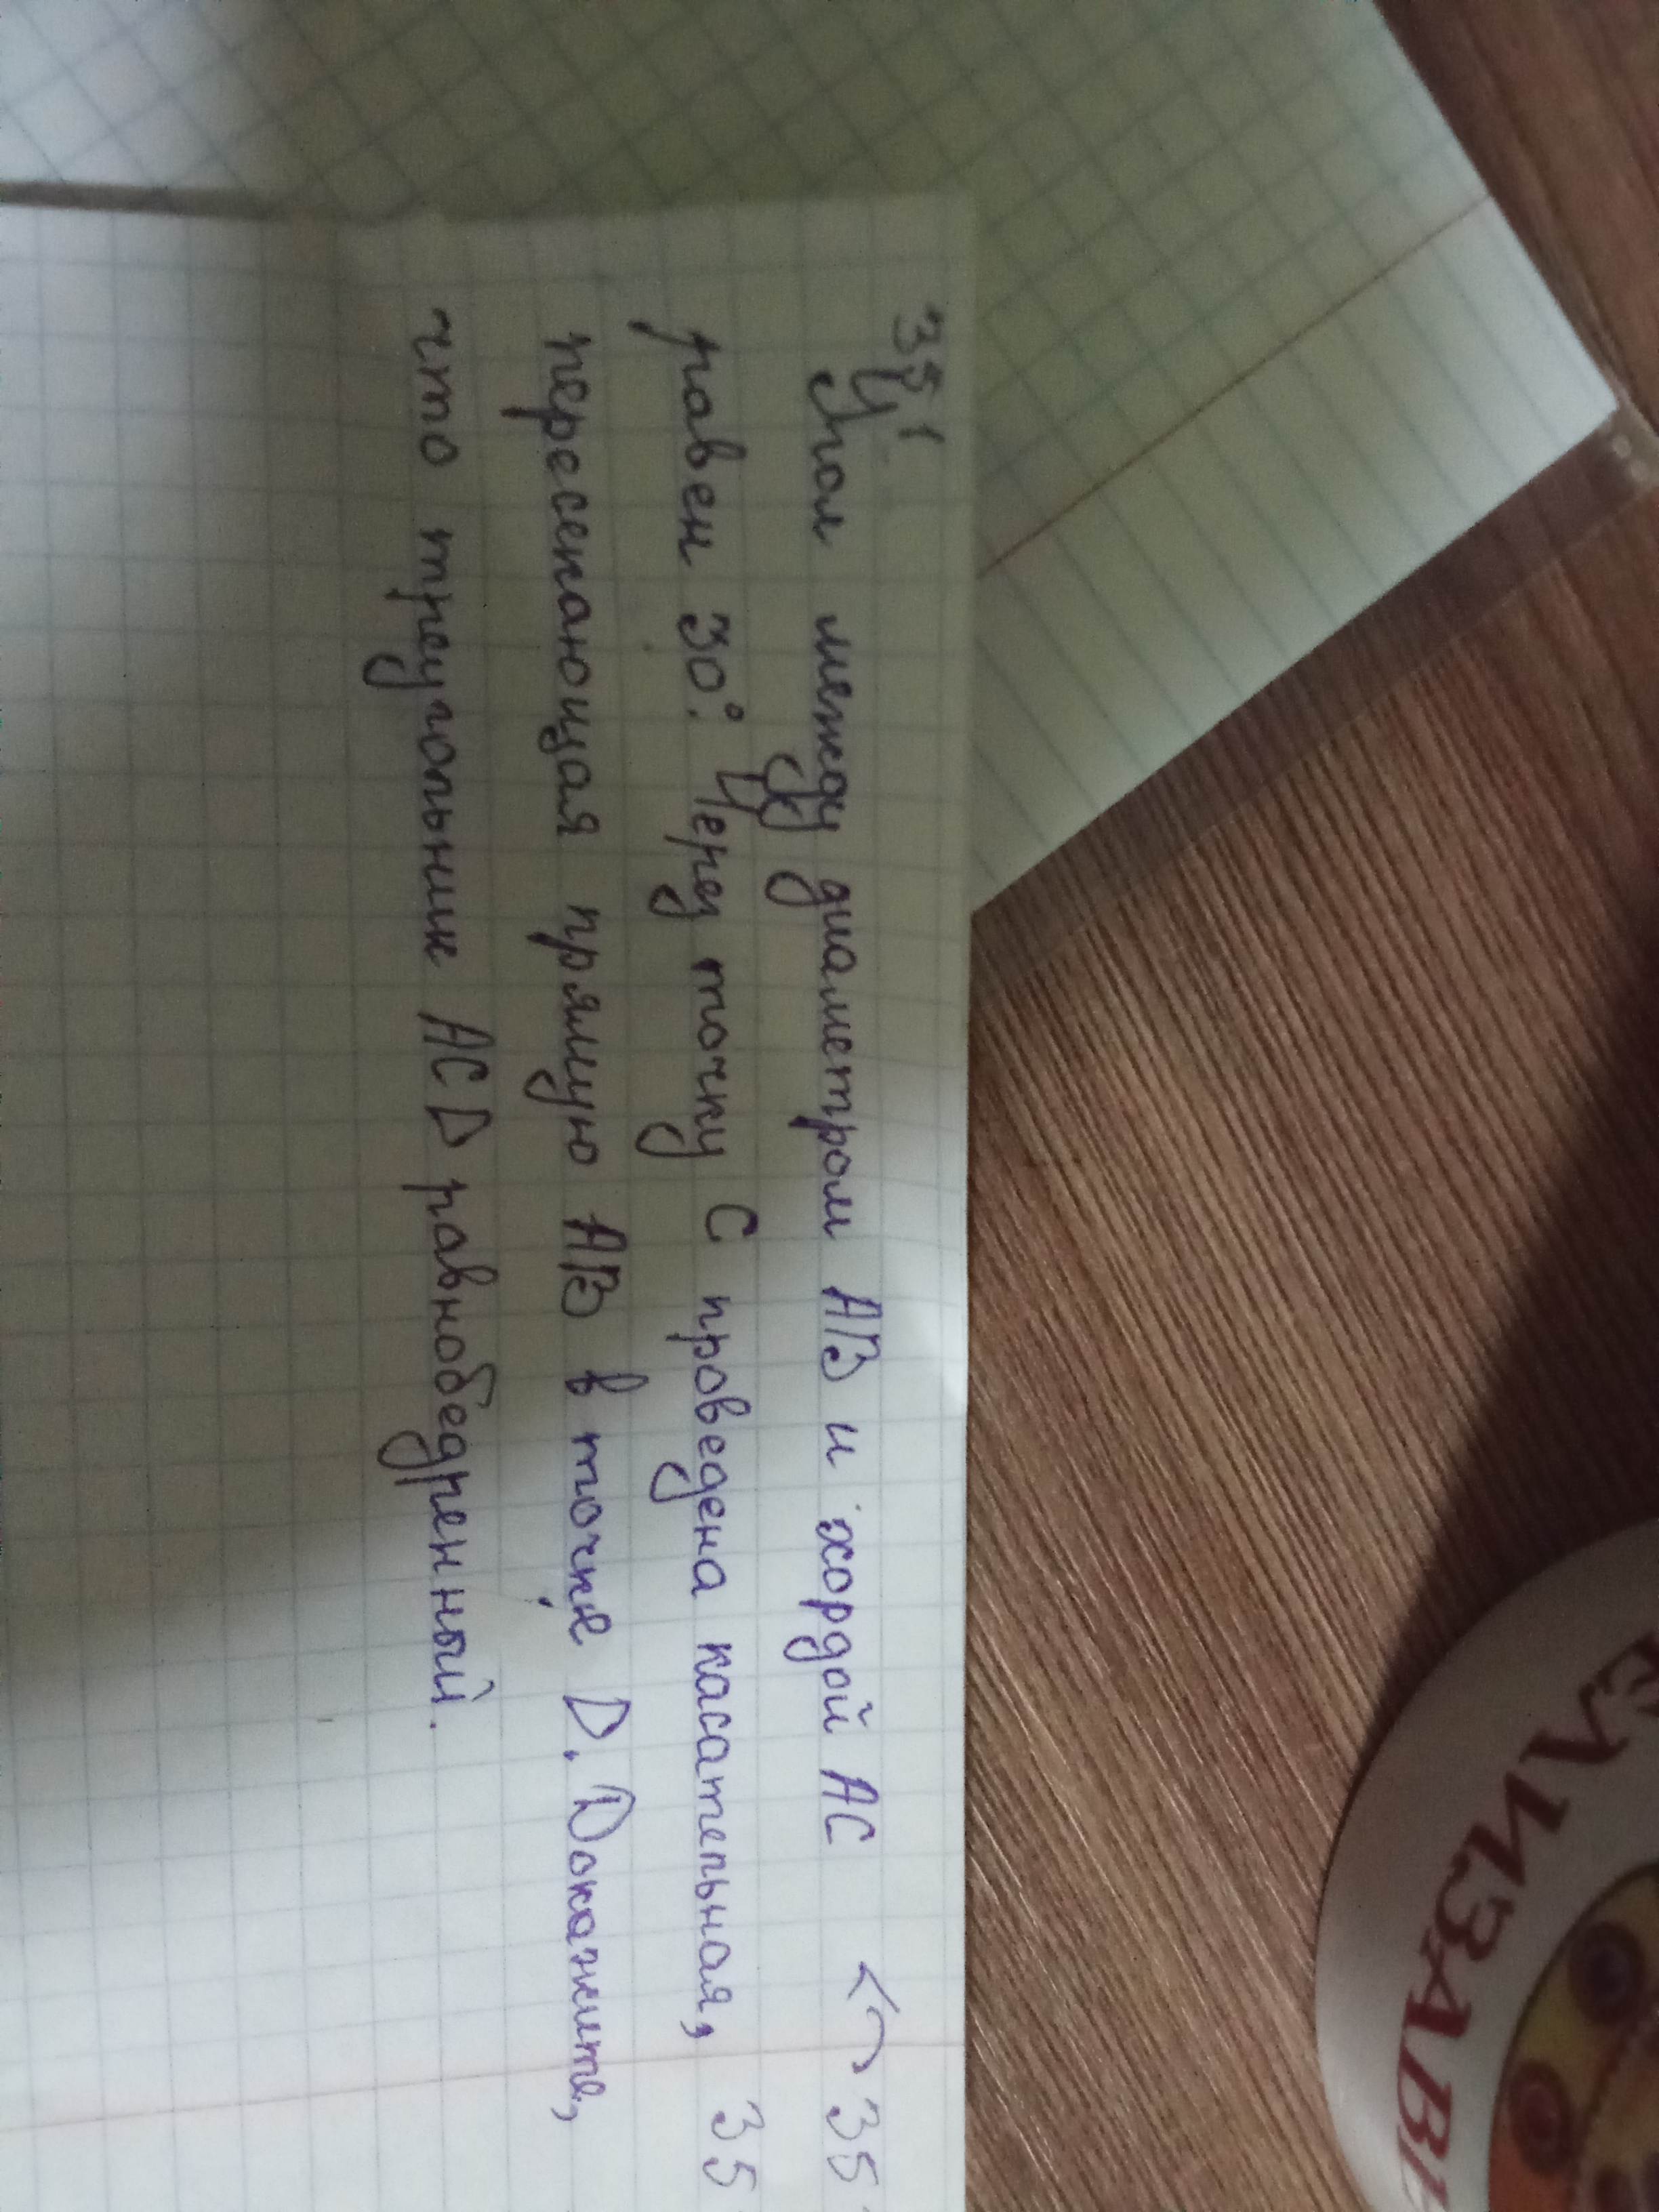 35 1
Угол между диаметром AB и хордой AC
равен 30°. Через точку C проведена касательная,
пересекающая прямую AB в точке D. Докажите,
что треугольник ACD равнобедренный.
35
35
ЕЛИЗАВЕ